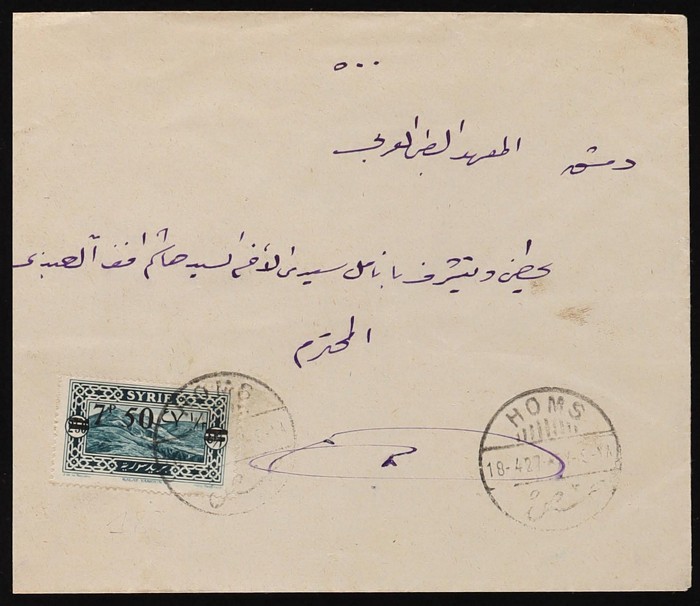 ٥٠٠
دمشق المعهد الطبي العربي
يحظى ويتشرف بأنامل سيدي الأخ السيد هاشم افندي
المحترم
SYRIE
7P 50
HOMS
HOMS
18-4 27
حمص